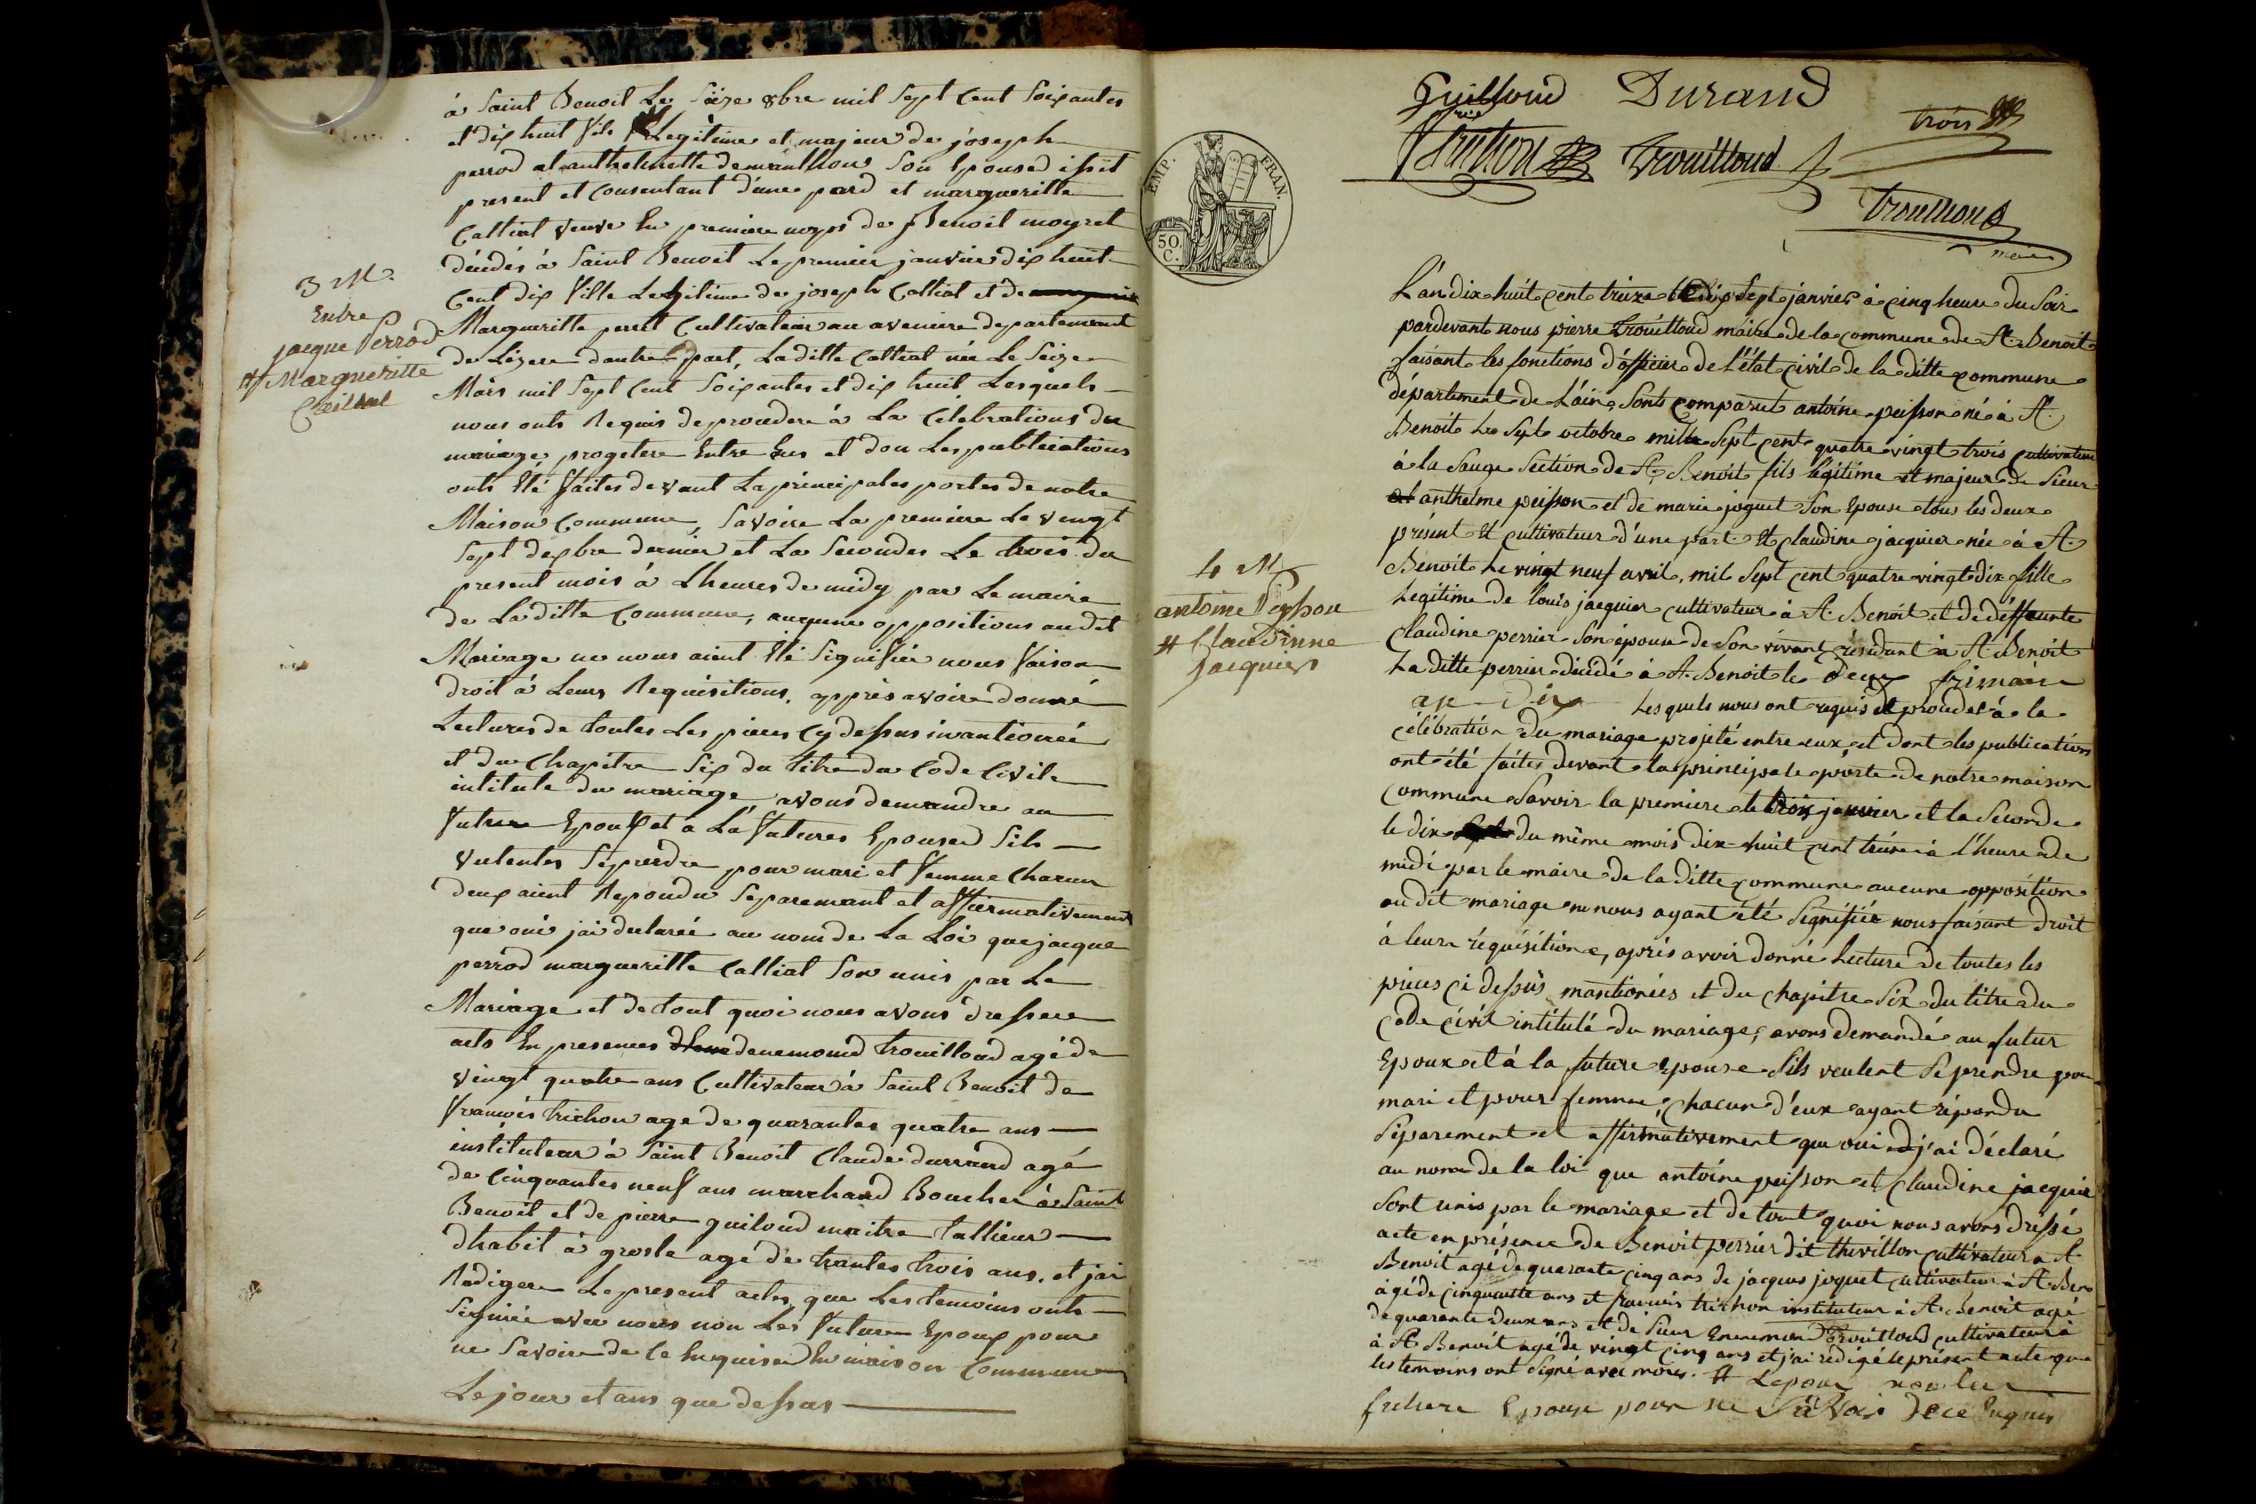 à Saint Benoit Le Saize 8bre mil Sept Cent Soixantes
et dix huit fils Legitime et majeur de joseph
perrod et anthelmette demanthon Son Epouse issit
present et consentant d'une pard et margueritte
Calliat veuve En premiere nops de Benoit moyret
décédés à Saint Benoit Le premier janvier dix huit
Cent dix fille Legitime de joseph Calliat et de
Margueritte perret Cultivateur au aveniere departement
de Lizere dautre part, La ditte Calliat née Le Seize
Mars mil Sept Cent Soixantes et dix huit Lesquels
nous onts Requis de proceder à La Célébrations du
mariage progetere Entre Eus et don Les publications
onts Eté faites devant La principales portes de notre
Maison Commune, Savoire La premiere Le vingt
Sept dexbre dernier et La Secondes Le trois du
present mois à Lheures de midy par Le maire
de La ditte Commune, aucune oppositions audit
Mariage ne nous aient Eté Signifiée nous faison
droit à Leurs Requisitions, appres avoire donné
Lectures de toutes Les pieces Cy dessus mantionée
et du Chapitre Six du titre du Code Civile
intitule du mariage, avons demandre au
future Epoux et à La futures Epouse Sils
veulentes Seprendre pour mari et femme Chacun
deux aient Repondu Separemant et affiermativement
que oui jai declarée au nom de La Loi que jacque
perrod margueritte Calliat Son unis par Le
Mariage et de tout quoi nous avons dressere
acts En presences denemond trouilloud agé de
vingt quatre ans Cultivateur à Saint Benoit de
francois trichon age de quarantes quatre ans
instituteur à Saint Benoit Claude durrand agé
de Cinquantes neuf ans marchand Boucher à Saint
Benoit et de pierre guiloud maitre tallieur
dhabit à grosle agé de trantes trois ans, et jai
Rediger Le present actes que Les temoins onts
Signié avec nous non Les future Epoux pour
ne Savoire de Ce Enquise En maison Commune
Le jour et ans que dessus
3 M.
Entre
jacque Perrod
# Margueritte
Calliat
Guilloud Durand
Trichon Trouilloud
trois
Trouilloud
maire
EMP. FRAN.
50. C.
L'an dix huit cent treize le dix Sept janvier à cinq heure du Soir
pardevant nous pierre trouilloud maire de la commune de St. Benoit
faisant les fonctions d'officier de l'état civil de la ditte commune
département de L'ain, Sont comparut antoine peisson né à St.
Benoit Le Sept octobre mille Sept cent quatre vingt trois cultivateur
à la Sauge Section de St. Benoit fils légitime et majeur de Sieur
anthelme peisson et de marie joguet Son Epouse tous les deux
présent et cultivateur d'une part et claudine jacquier née à St.
Benoit Le vingt neuf avril, mil Sept cent quatre vingt dix fille
Legitime de louis jacquier cultivateur à St. Benoit et de déffeunte
Claudine perrier Son épouse de Son vivant résidant à St. Benoit
La ditte perrier décédé à St. Benoit le deux frimaire
an dix Lesquels nous ont requis de proceder à la
célébration du mariage projeté entre eux, et dont les publications
ont été faites devant la principale porte de notre maison
commune Savoir la premiere le trois janvier et la Seconde
le dix du même mois dix huit cent treize à l'heure de
midi par le maire de la ditte commune aucune opposition
au dit mariage ne nous ayant été Signifiée nous faisant droit
à leur réquisitione, aprés avoir donné Lecture de toutes les
pieces ci dessus mantionées et du chapitre Six du titre du
code civil intitulé du mariage, avons demandé au futur
Epoux et à la future epouse Sils veulent Se prendre pour
mari et pour femme, chacun d'eux ayant répondu
Séparement et affirmativement que oui j'ai déclaré
au nom de la loi que antoine peisson et Claudine jacquier
Sont unis par le mariage et de tout quoi nous avons dressé
acte en présence de Benoit perrier dit thevillon cultivateur à St
Benoit agé de quarante cinq ans de jacques joguet cultivateur à St. Beno
agé de cinquante ans et francois trichon instituteur à St. Benoit agé
de quarante deux ans et de Sieur Ennemond trouilloud cultivateur à
à St. Benoit agé de vingt cinq ans et j'ai rédigé le présent acte que
les temoins ont Signé avec nous. # Lepoux non la
future Epouse pour ne Savoir de ce Enquis
4 M
antoine Peysson
# Claudinne
jacquier